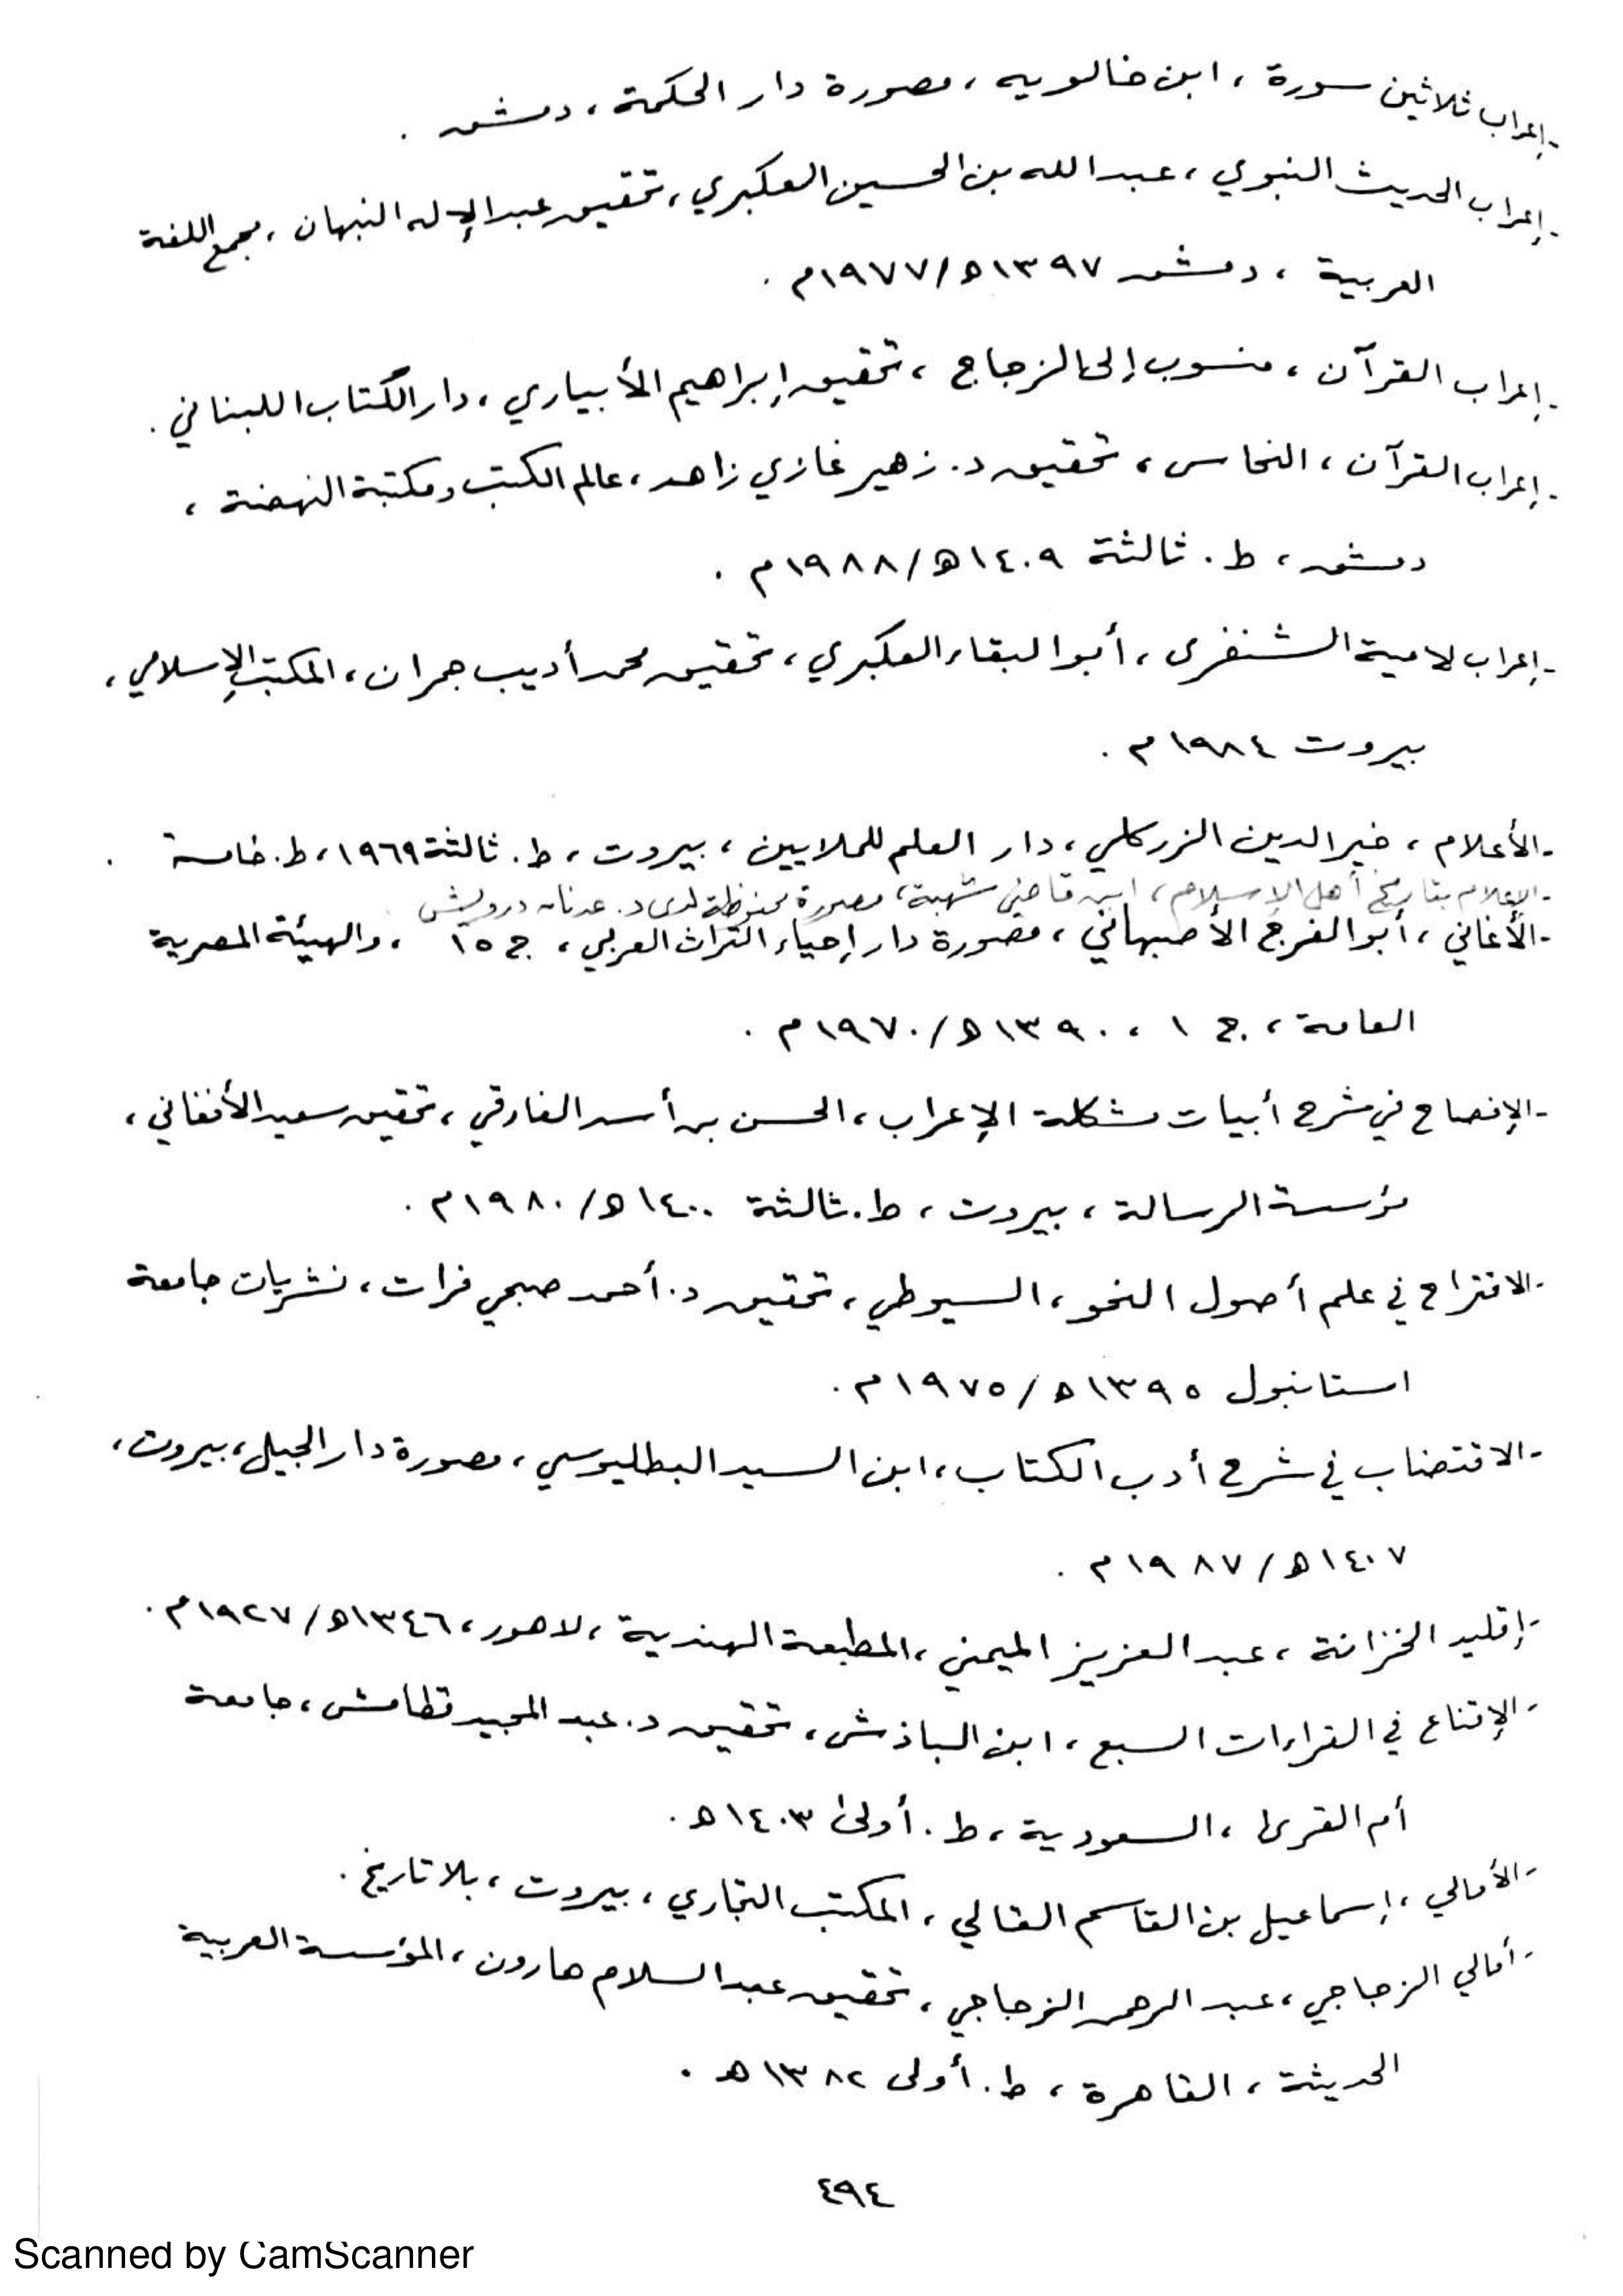 -إعراب ثلاثين سورة ، ابن خالويه ، مصورة دار الحكمة ، دمشق .
-إعراب الحديث النبوي ، عبدالله بن الحسين العكبري ، تحقيق عبدالإله النبهان ، مجمع اللغة
العربية ، دمشق ١٣٩٧ه/١٩٧٧م .
-إعراب القرآن ، منسوب إلى الزجاج ، تحقيق إبراهيم الأبياري ، دار الكتاب اللبناني .
-إعراب القرآن ، النحاس ، تحقيق د. زهير غازي زاهد ، عالم الكتب ومكتبة النهضة ،
دمشق ، ط. ثالثة ١٤٠٩ه/١٩٨٨م .
-إعراب لامية الشنفرى ، أبو البقاء العكبري ، تحقيق محمد أديب جمران ، المكتب الإسلامي ،
بيروت ١٩٨٤م .
-الأعلام ، خير الدين الزركلي ، دار العلم للملايين ، بيروت ، ط. ثالثة ١٩٦٩ ، ط. خامسة .
-الإعلام بتاريخ أهل الإسلام ، ابن قاضي شهبة ، مصورة محفوظة لدى د. عدنان درويش
-الأغاني ، أبو الفرج الأصبهاني ، مصورة دار إحياء التراث العربي ، ج ١٥ ، والهيئة المصرية
العامة ، ج ١ ، ١٣٩٠ه/١٩٧٠م .
-الإفصاح في شرح أبيات مشكلة الإعراب ، الحسن بن أسد الفارقي ، تحقيق سعيد الأفغاني ،
مؤسسة الرسالة ، بيروت ، ط. ثالثة ١٤٠٠ه/١٩٨٠م .
-الاقتراح في علم أصول النحو ، السيوطي ، تحقيق د. أحمد صبحي فرات ، نشريات جامعة
استانبول ١٣٩٥ه/١٩٧٥م .
-الاقتضاب في شرح أدب الكتاب ، ابن السيد البطليوسي ، مصورة دار الجيل ، بيروت ،
١٤٠٧ه/١٩٨٧م .
-إقليد الخزانة ، عبد العزيز الميمني ، المطبعة الهندية ، لاهور ، ١٣٤٦ه/١٩٢٧م .
-الإقناع في القراءات السبع ، ابن الباذش ، تحقيق د. عبد المجيد قطامش ، جامعة
أم القرى ، السعودية ، ط. أولى ١٤٠٣ه .
-الأمالي ، إسماعيل بن القاسم القالي ، المكتب التجاري ، بيروت ، بلا تاريخ .
-أمالي الزجاجي ، عبد الرحمن الزجاجي ، تحقيق عبد السلام هارون ، المؤسسة العربية
الحديثة ، القاهرة ، ط. أولى ١٣٨٢ه .
٤٩٤
Scanned by CamScanner